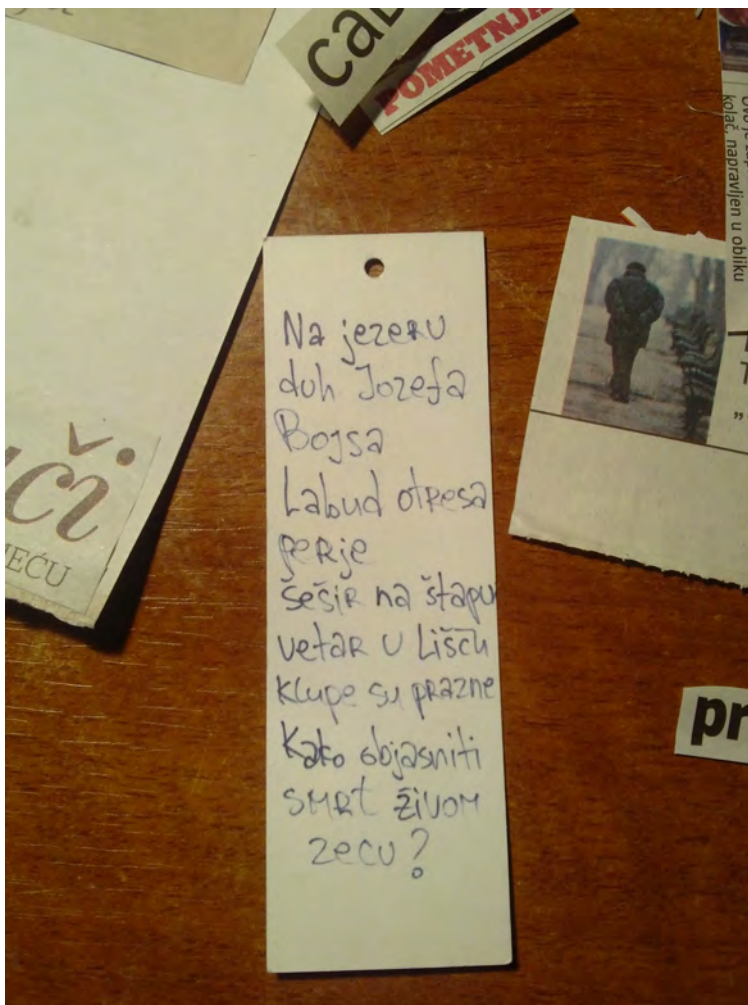 POMETNJA
kolač, napravljen u obliku
Na jezeru
duh Jozefa
Bojsa
Labud otresa
perje
šešir na štapu
vetar u lišću
klupe su prazne
Kako objasniti
smrt živom
zecu?
či
pr